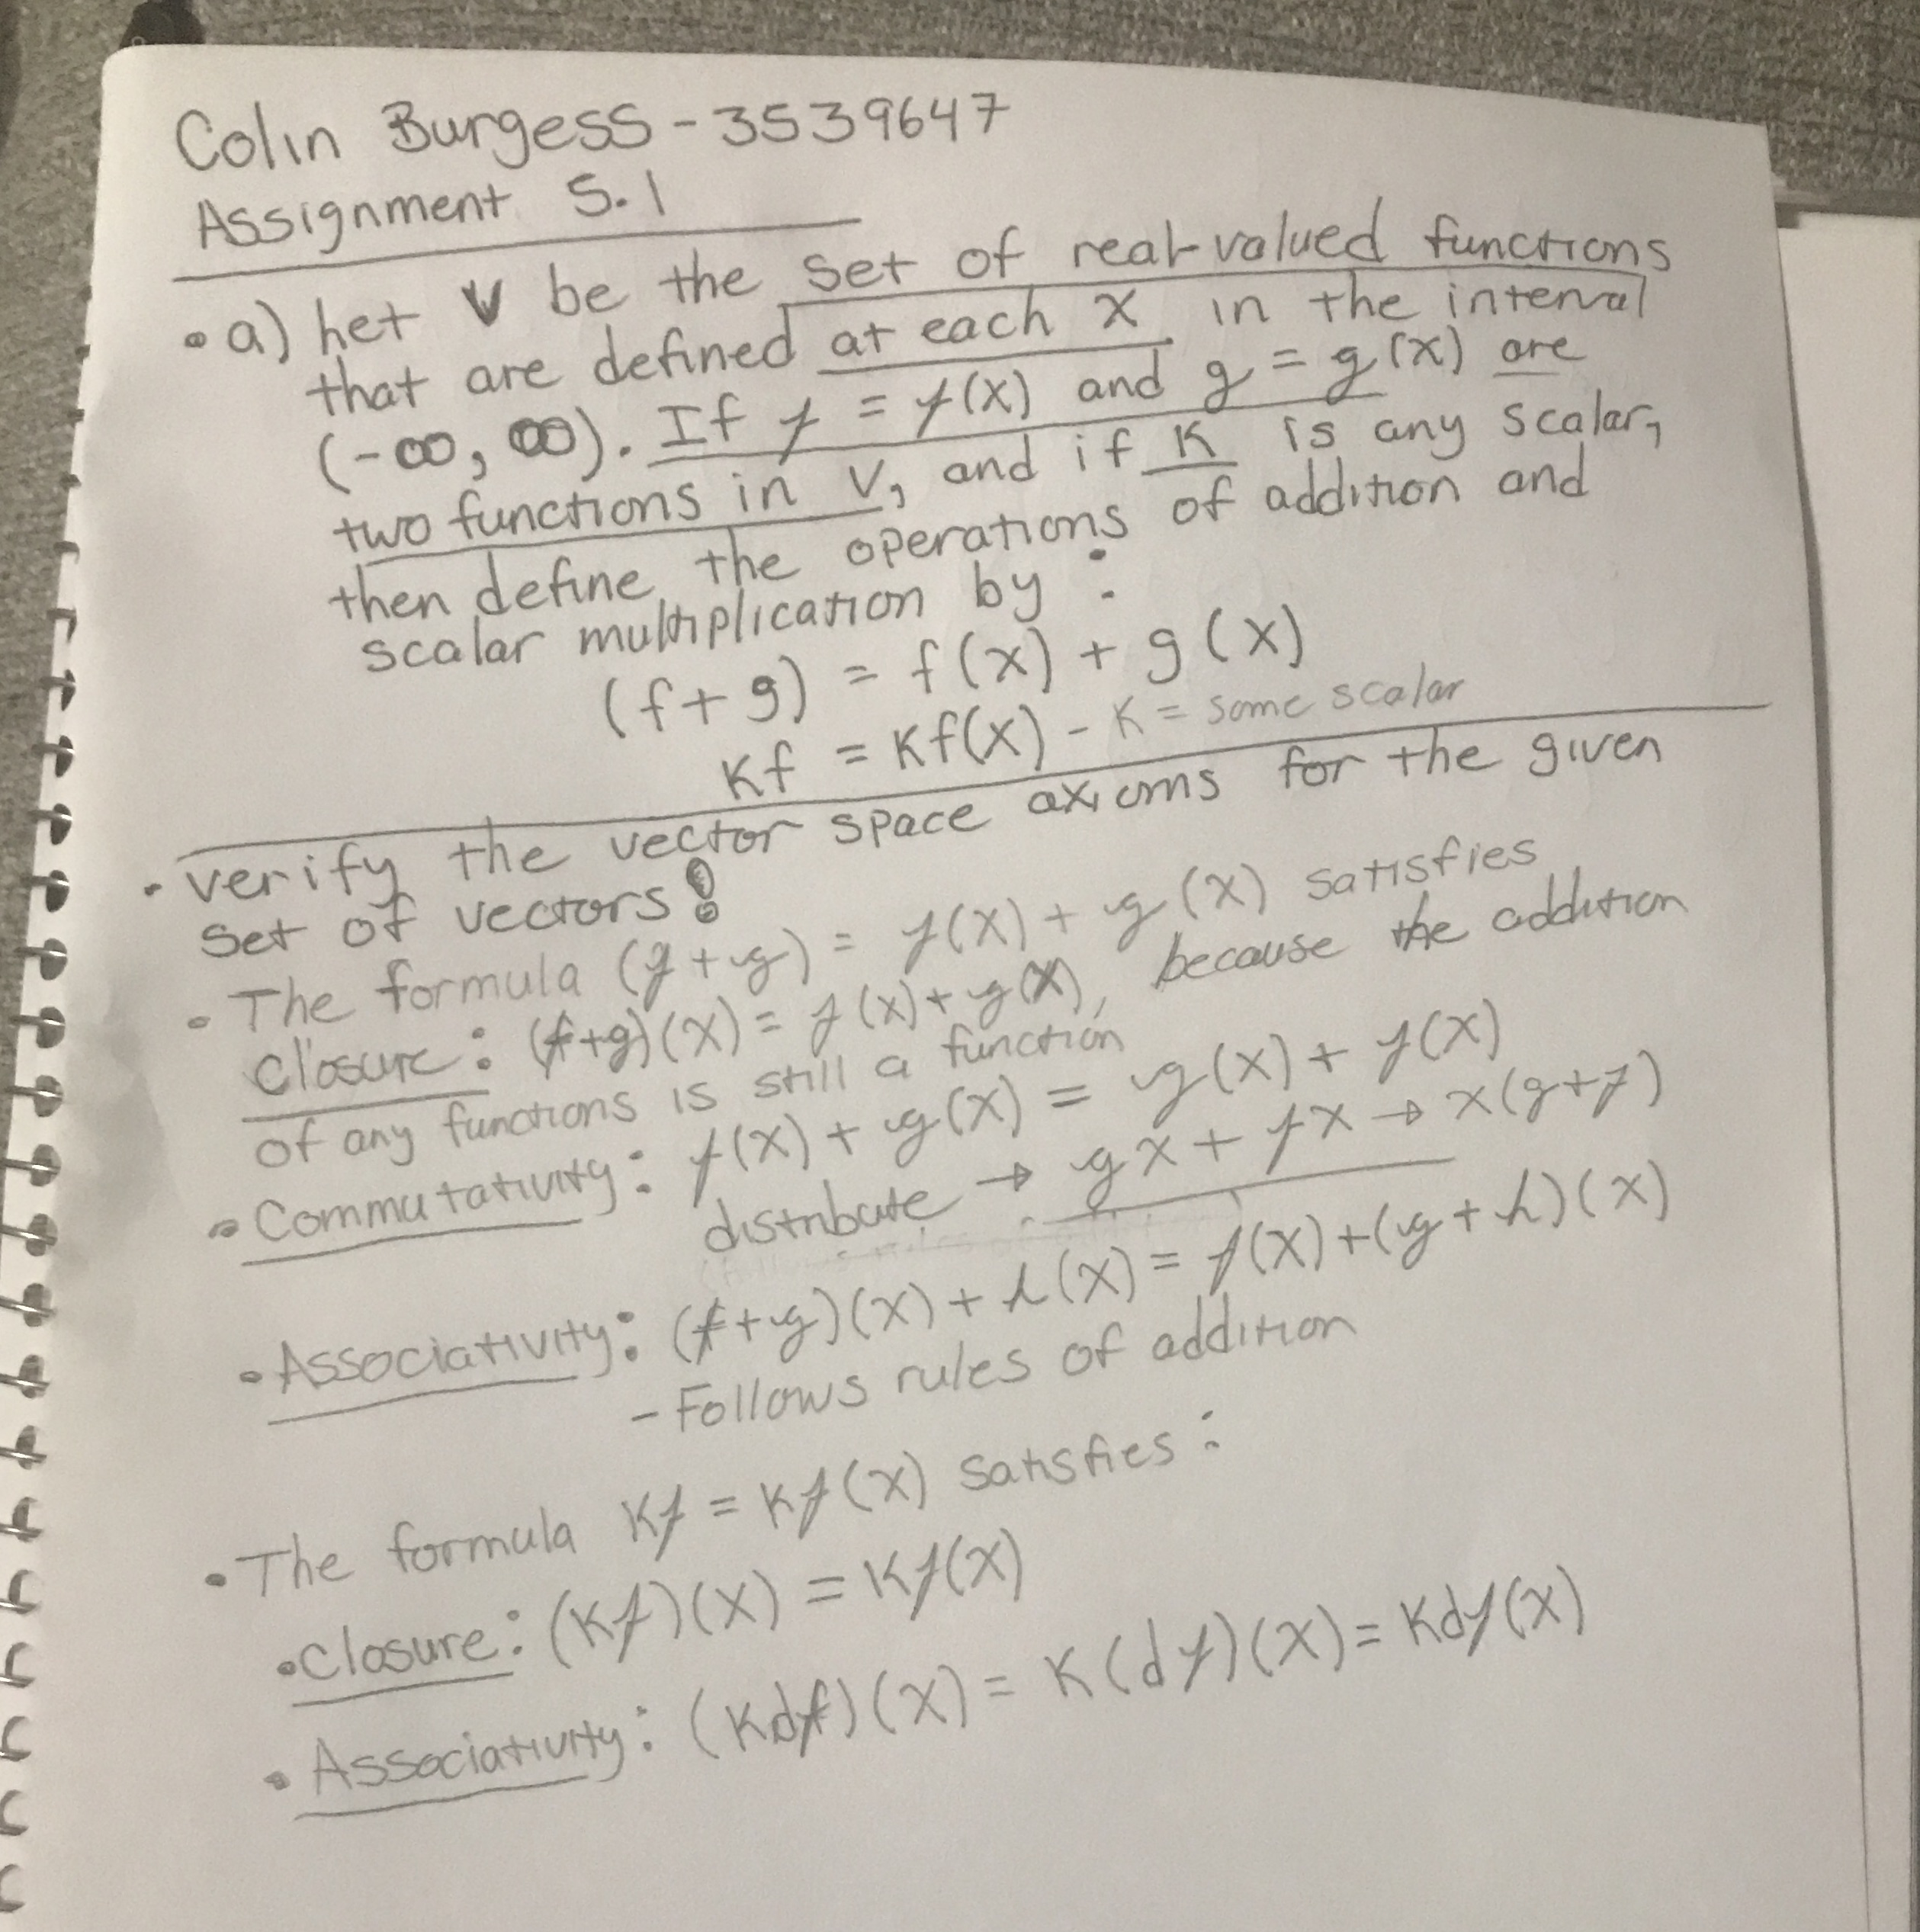 Colin Burgess - 3539647
Assignment 5.1
• a) Let V be the set of real-valued functions
that are defined at each x in the interval
(-∞, ∞). If f = f(x) and g = g(x) are
two functions in V, and if K is any scalar,
then define the operations of addition and
scalar multiplication by :
(f+g) = f(x) + g(x)
Kf = Kf(x) - K = some scalar
• verify the vector space axioms for the given
set of vectors!
• The formula (f+g) = f(x) + g(x) satisfies
closure: (f+g)(x) = f(x)+g(x), because the addition
of any functions is still a function
• Commutativity: f(x) + g(x) = g(x) + f(x)
distribute → gx + fx → x(g+f)
• Associativity: (f+g)(x) + h(x) = f(x)+(g+h)(x)
- Follows rules of addition
• The formula Kf = Kf(x) satisfies :
• closure: (Kf)(x) = Kf(x)
• Associativity: (Kdf)(x) = K(df)(x) = Kdf(x)